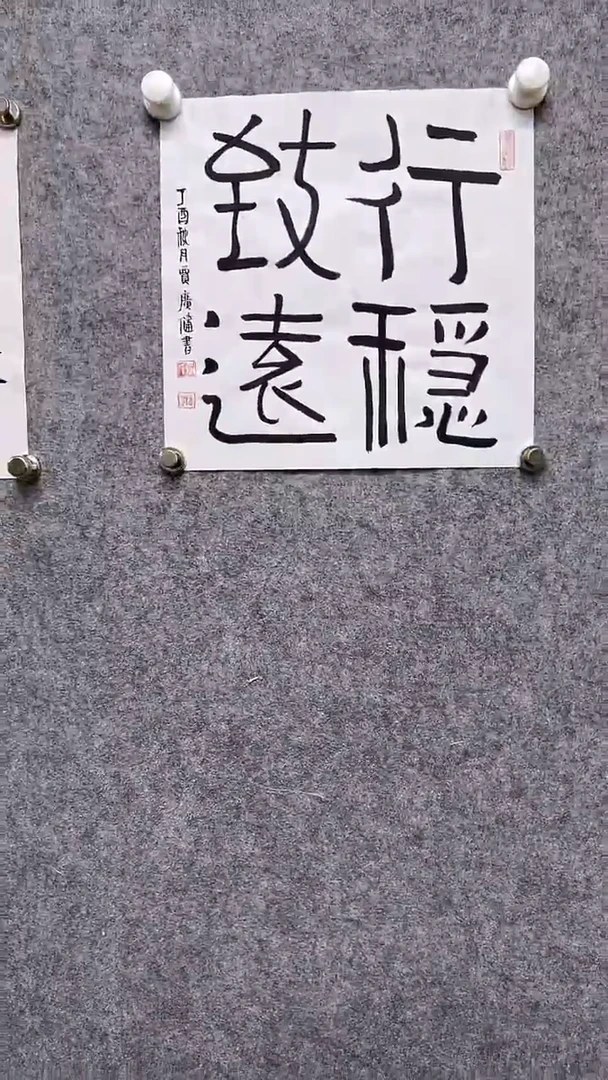 行穩
致遠
丁酉秋月賈廣健書